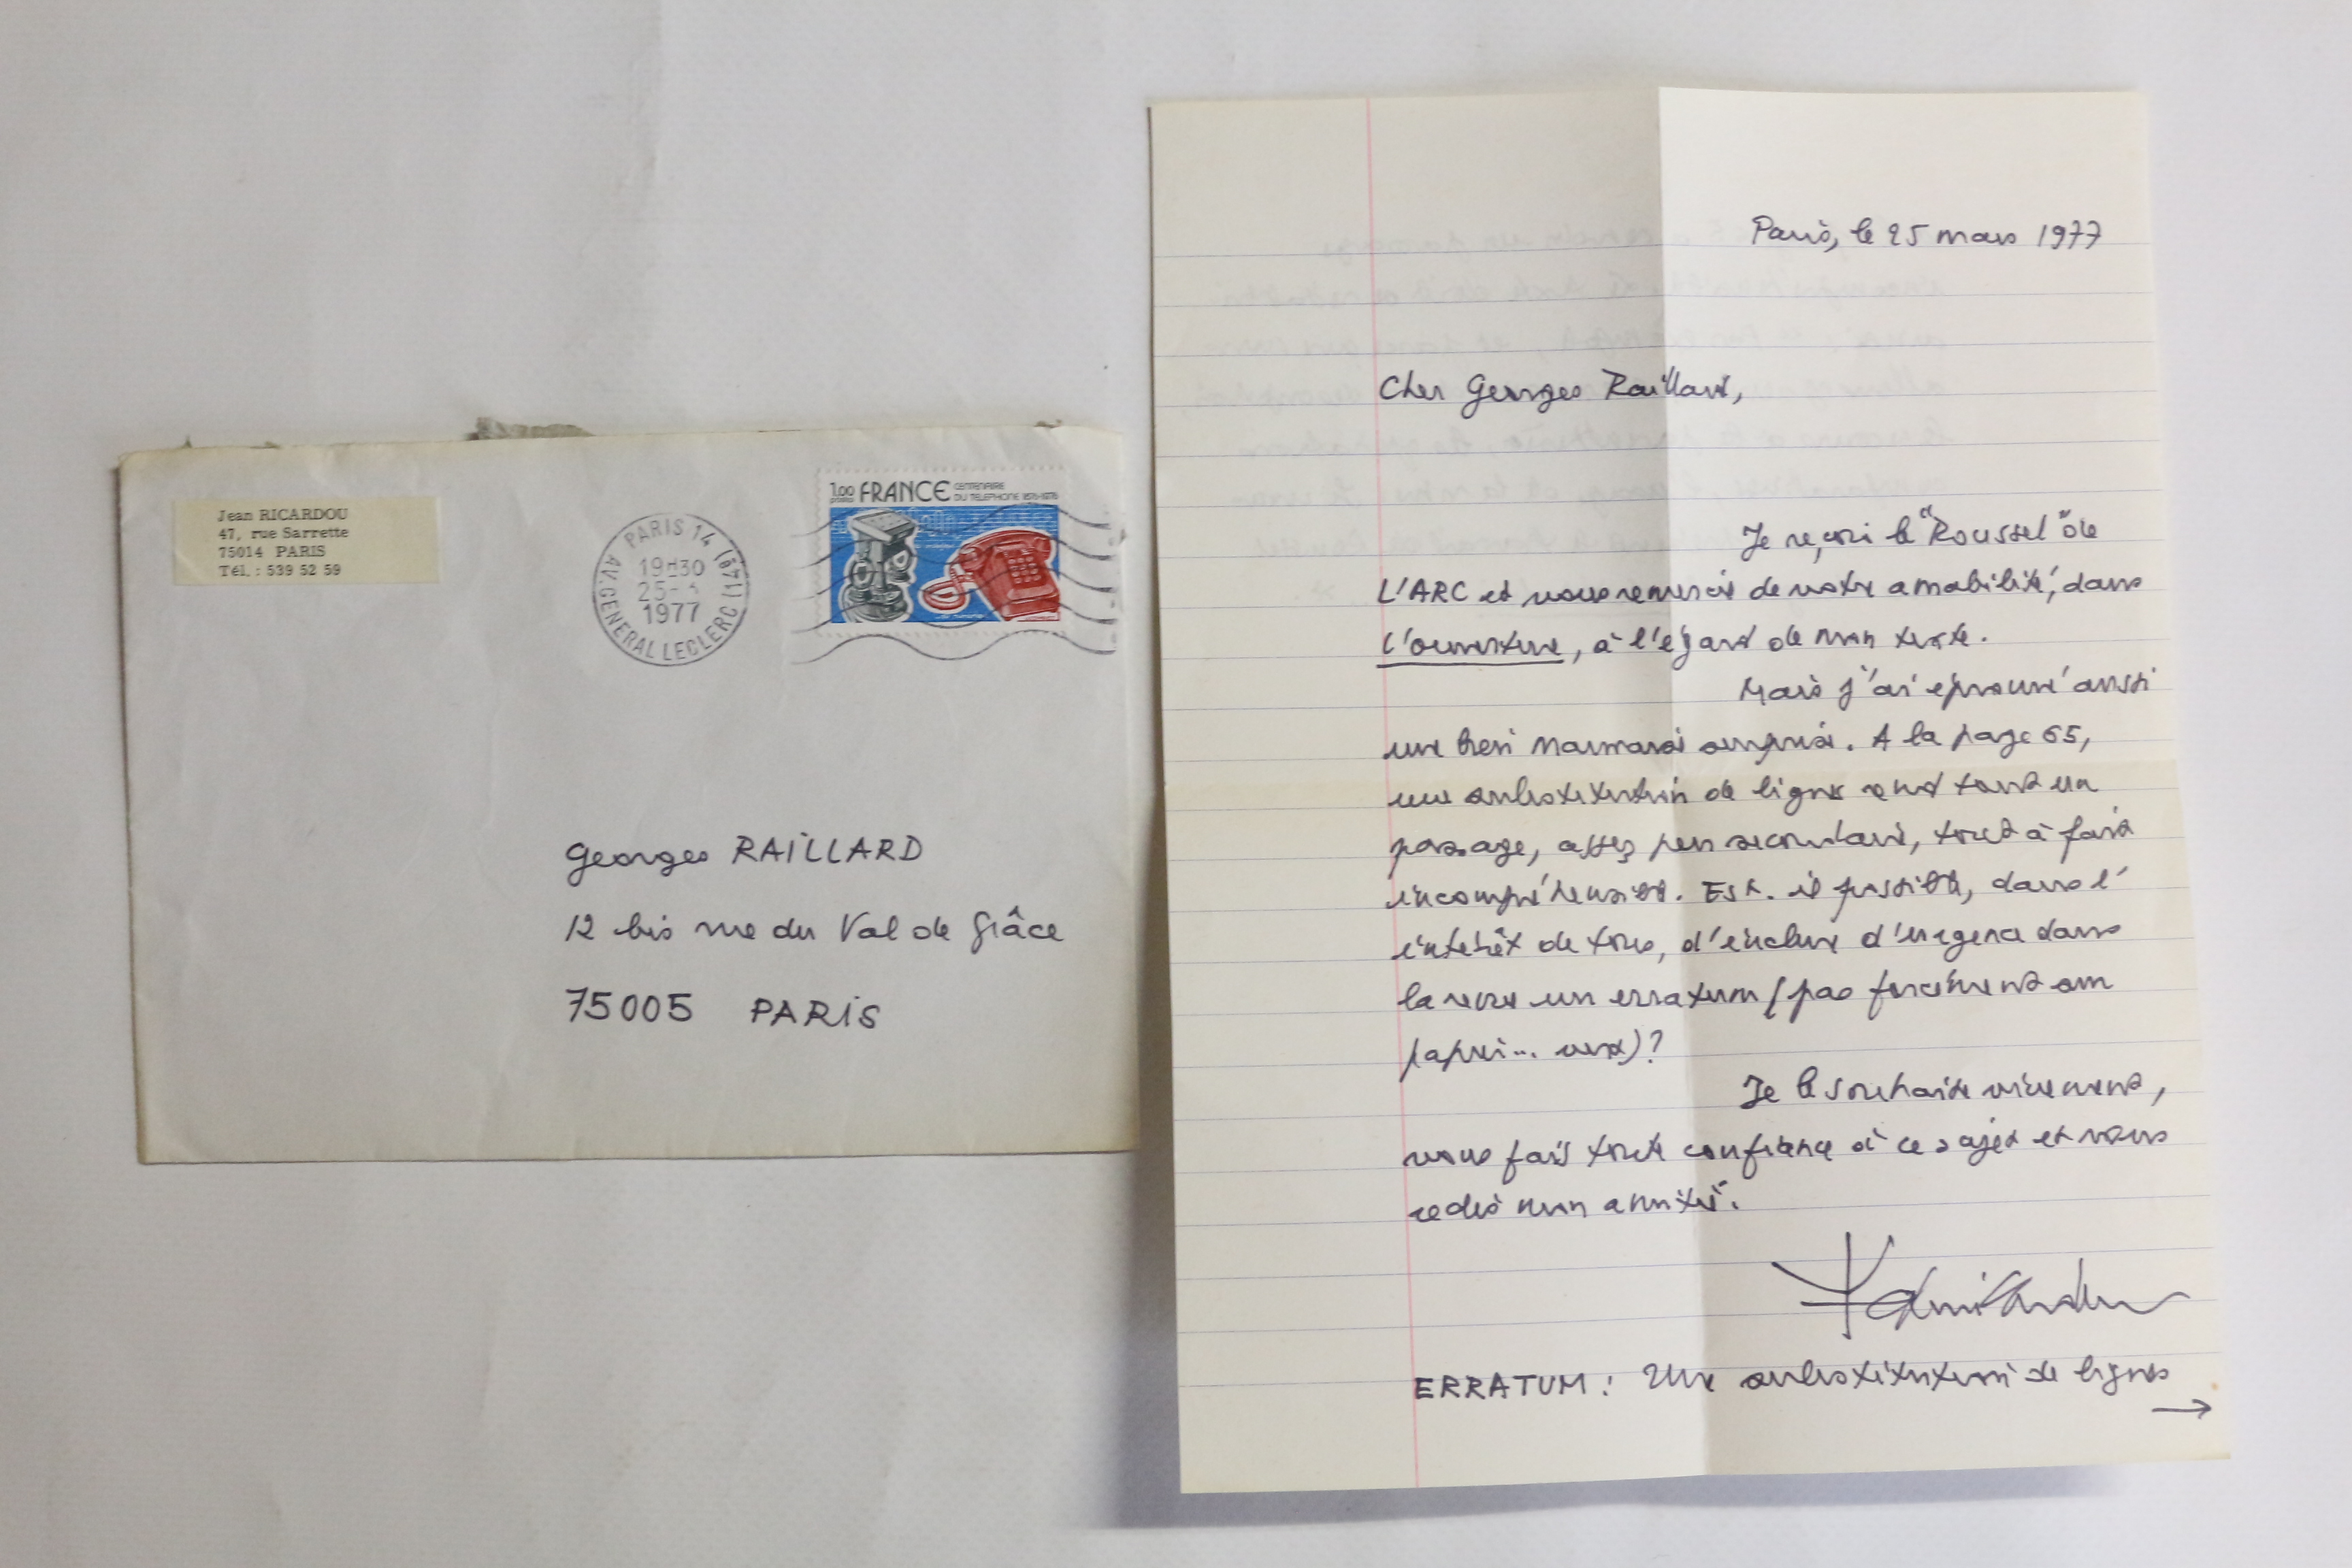 Jean RICARDOU
47, rue Sarrette
75014 PARIS
Tél. : 539 52 59
PARIS 14 (14e)
19H30
25-
1977
AV. GENERAL LECLERC
1,00 FRANCE CENTENAIRE
postes DU TELEPHONE 1876-1976
Georges RAILLARD
12 bis rue du Val de Grâce
75005 PARIS
Paris, le 25 mars 1977
Cher Georges Raillard,
Je reçois le "Roussel" de
L'ARC et vous remercie de votre amabilité, dans
l'ouverture, à l'égard de mon texte.
Mais j'ai éprouvé aussi
une bien mauvaise surprise. A la page 65,
une substitution de lignes rend tout un
passage, assez peu secondaire, tout à fait
incompréhensible. Est-il possible, dans l'
intérêt de tous, d'inclure d'urgence dans
la revue un erratum (pas forcément sur
papier... vert)?
Je le souhaite vivement,
vous fais toute confiance à ce sujet et vous
redis mon amitié.
ERRATUM : Une substitution de lignes
→